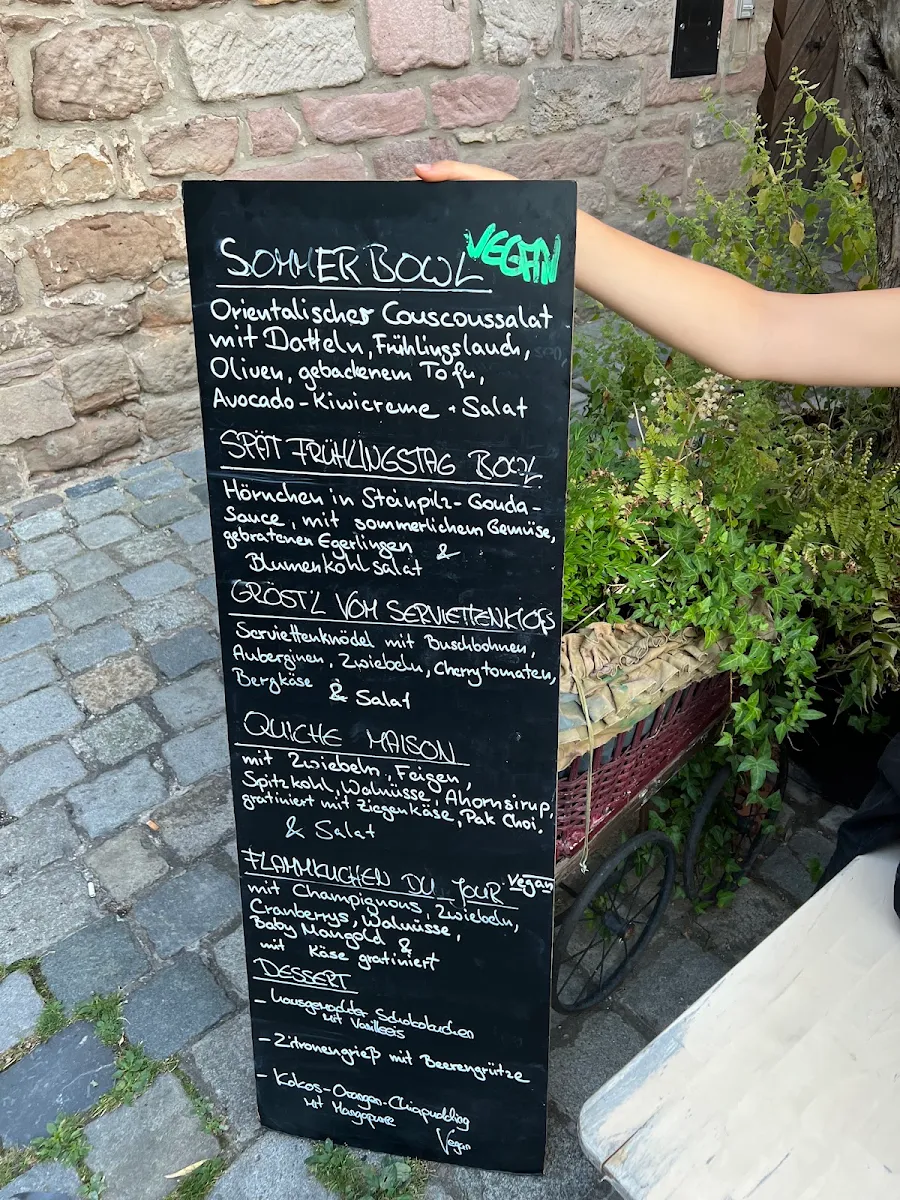 SOMMER BOWL VEGAN
Orientalischer Couscoussalat
mit Datteln, Frühlingslauch,
Oliven, gebackenem Tofu,
Avocado-Kiwicreme + Salat
SPÄT FRÜHLINGSTAG BOWL
Hörnchen in Steinpilz-Gouda-
Sauce, mit sommerlichem Gemüse,
gebratenen Egerlingen &
Blumenkohlsalat
GRÖST'L VOM SERVIETTENKLOS
Serviettenknödel mit Buschbohnen,
Auberginen, Zwiebeln, Cherrytomaten,
Bergkäse & Salat
QUICHE MAISON
mit Zwiebeln, Feigen,
Spitzkohl, Walnüsse, Ahornsirup,
gratiniert mit Ziegenkäse, Pak Choi,
& Salat
FLAMMKUCHEN DU JOUR Vegan
mit Champignons, Zwiebeln,
Cranberrys, Walnüsse,
Baby Mangold &
mit Käse gratiniert
DESSERT
- hausgemachter Schokokuchen
mit Vanilleeis
- Zitronengrieß mit Beerengrütze
- Kokos-Orangen-Chiapudding
mit Mangopüree
Vegan